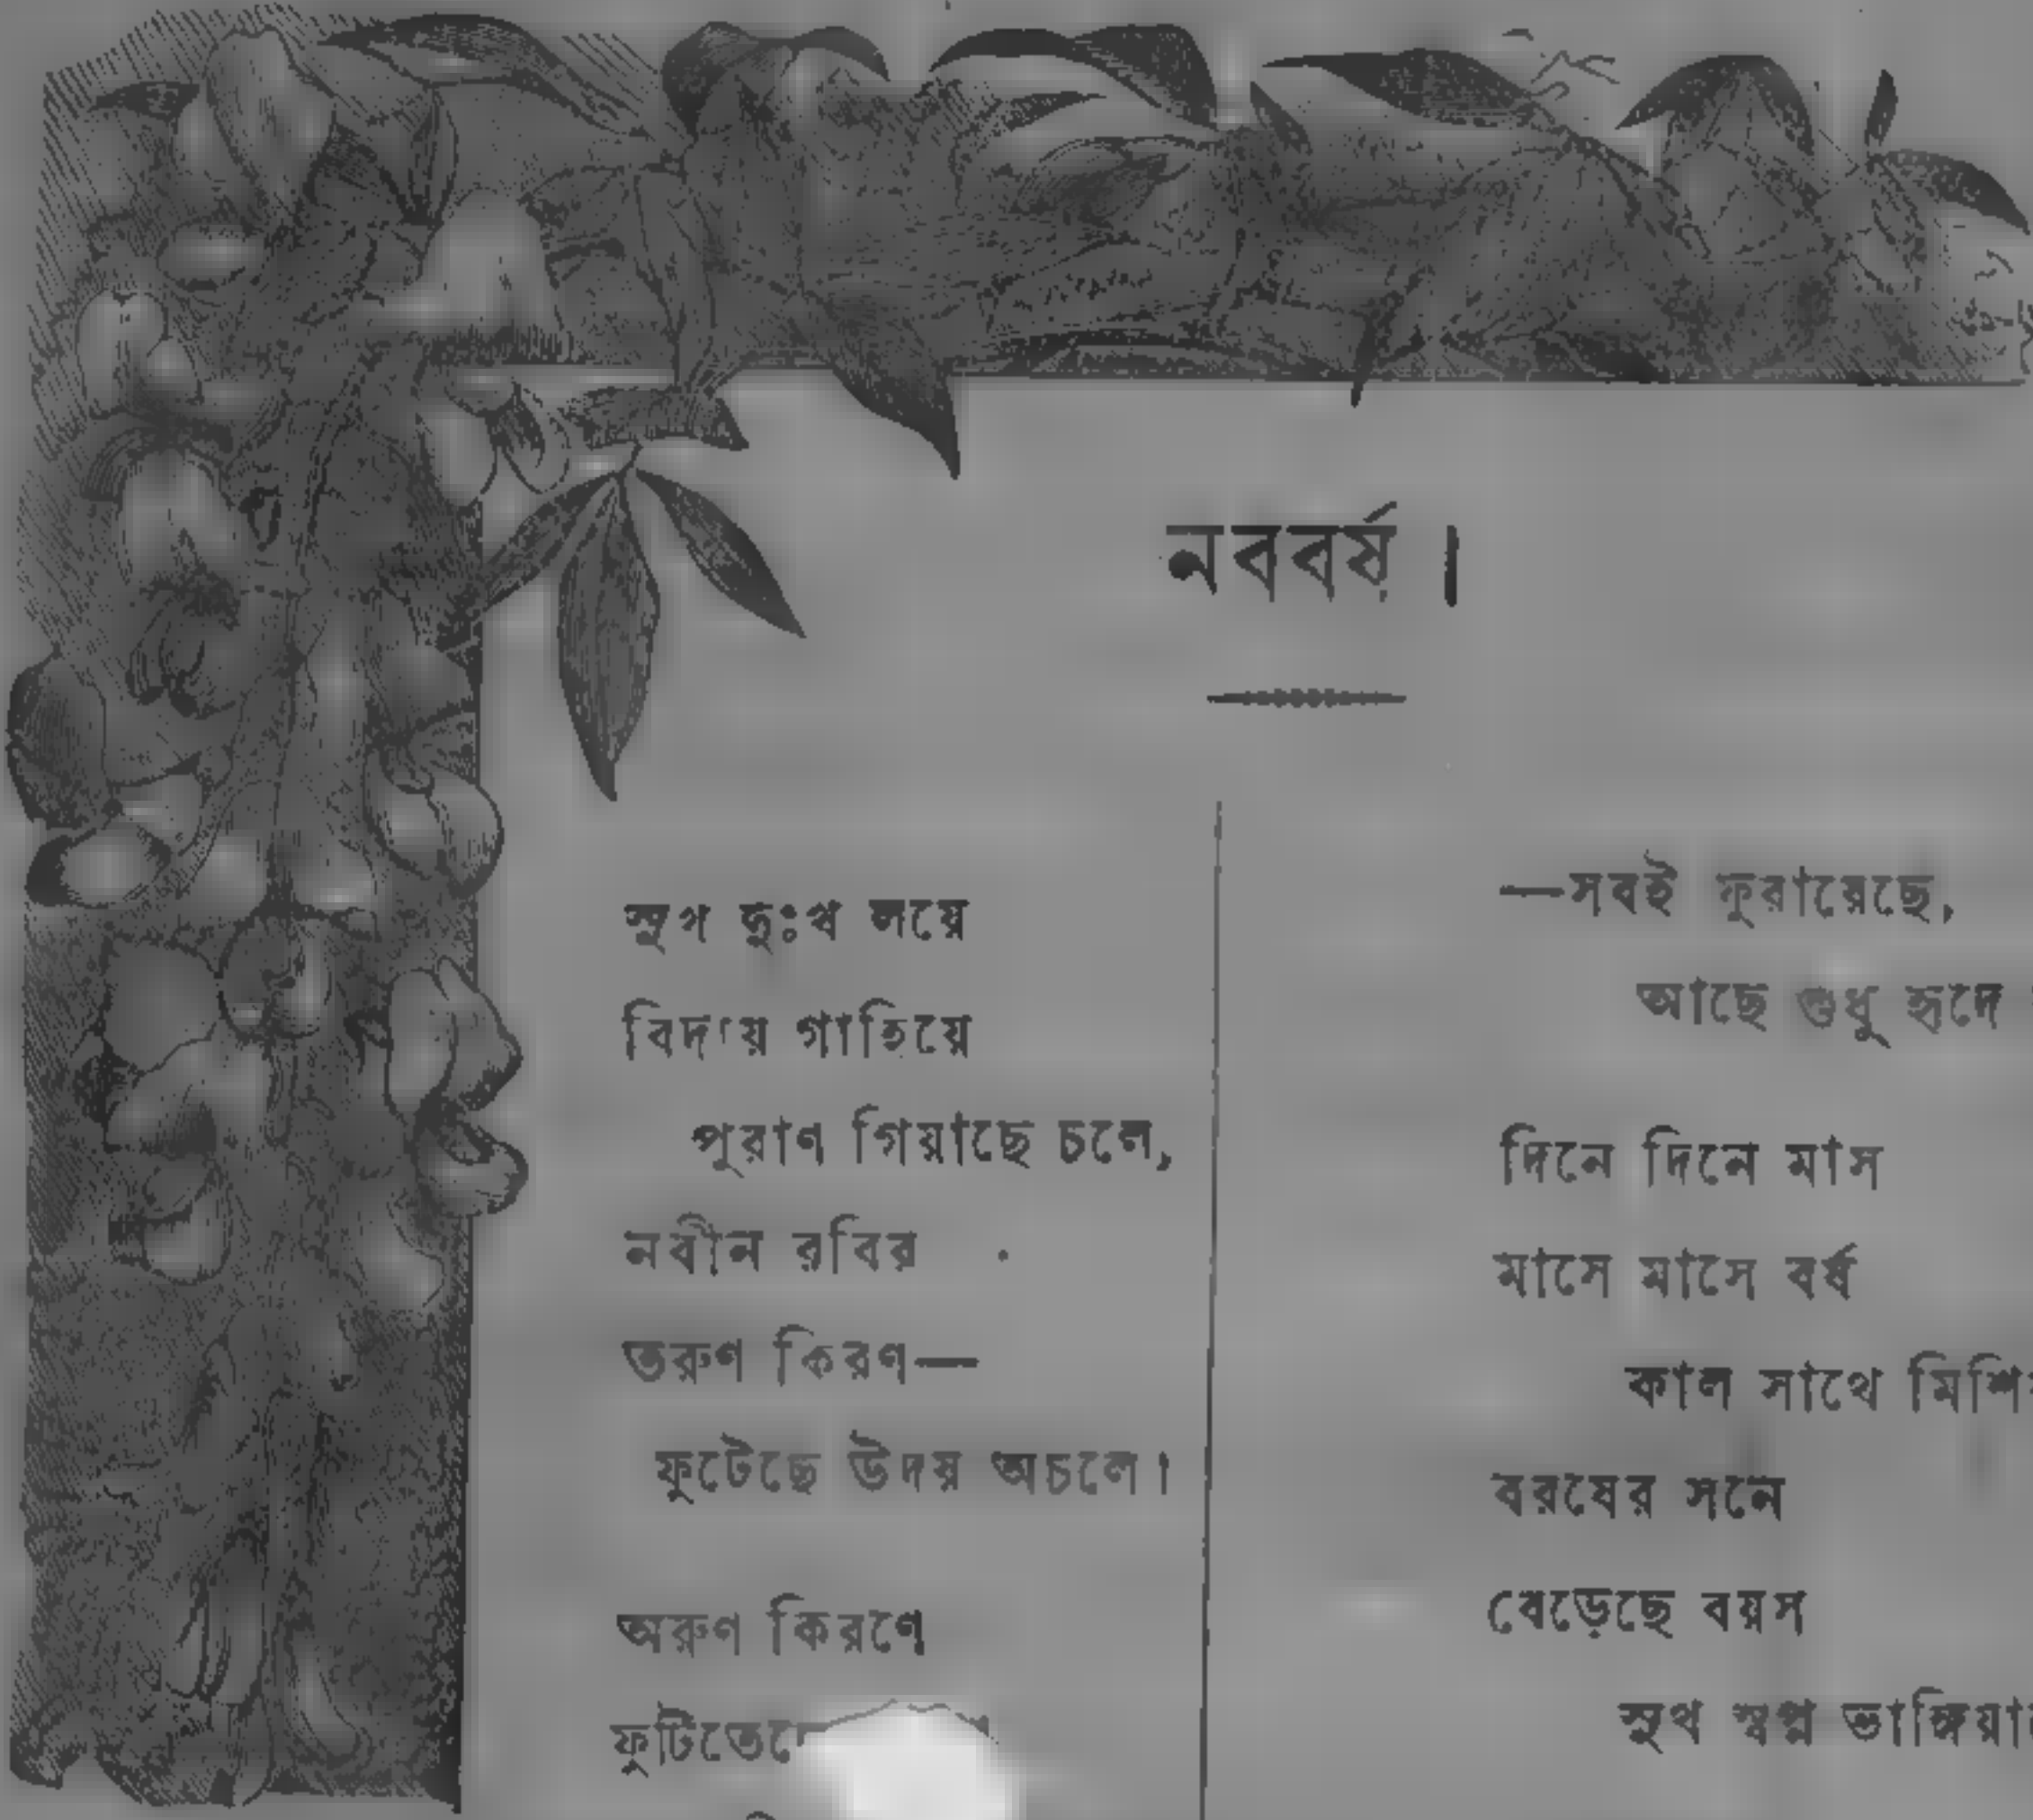 নববর্ষ ।
সুখ দুঃখ লয়ে
বিদায় গাহিয়ে
পুরাণ গিয়াছে চলে,
নবীন রবির
তরুণ কিরণ—
ফুটেছে উদয় অচলে।
অরুণ কিরণে
—সবই ফুরায়েছে,
আছে শুধু হৃদে
দিনে দিনে মাস
মাসে মাসে বর্ষ
কাল সাথে
বরষের সনে
বেড়েছে বয়স
সুখ স্বপ্ন